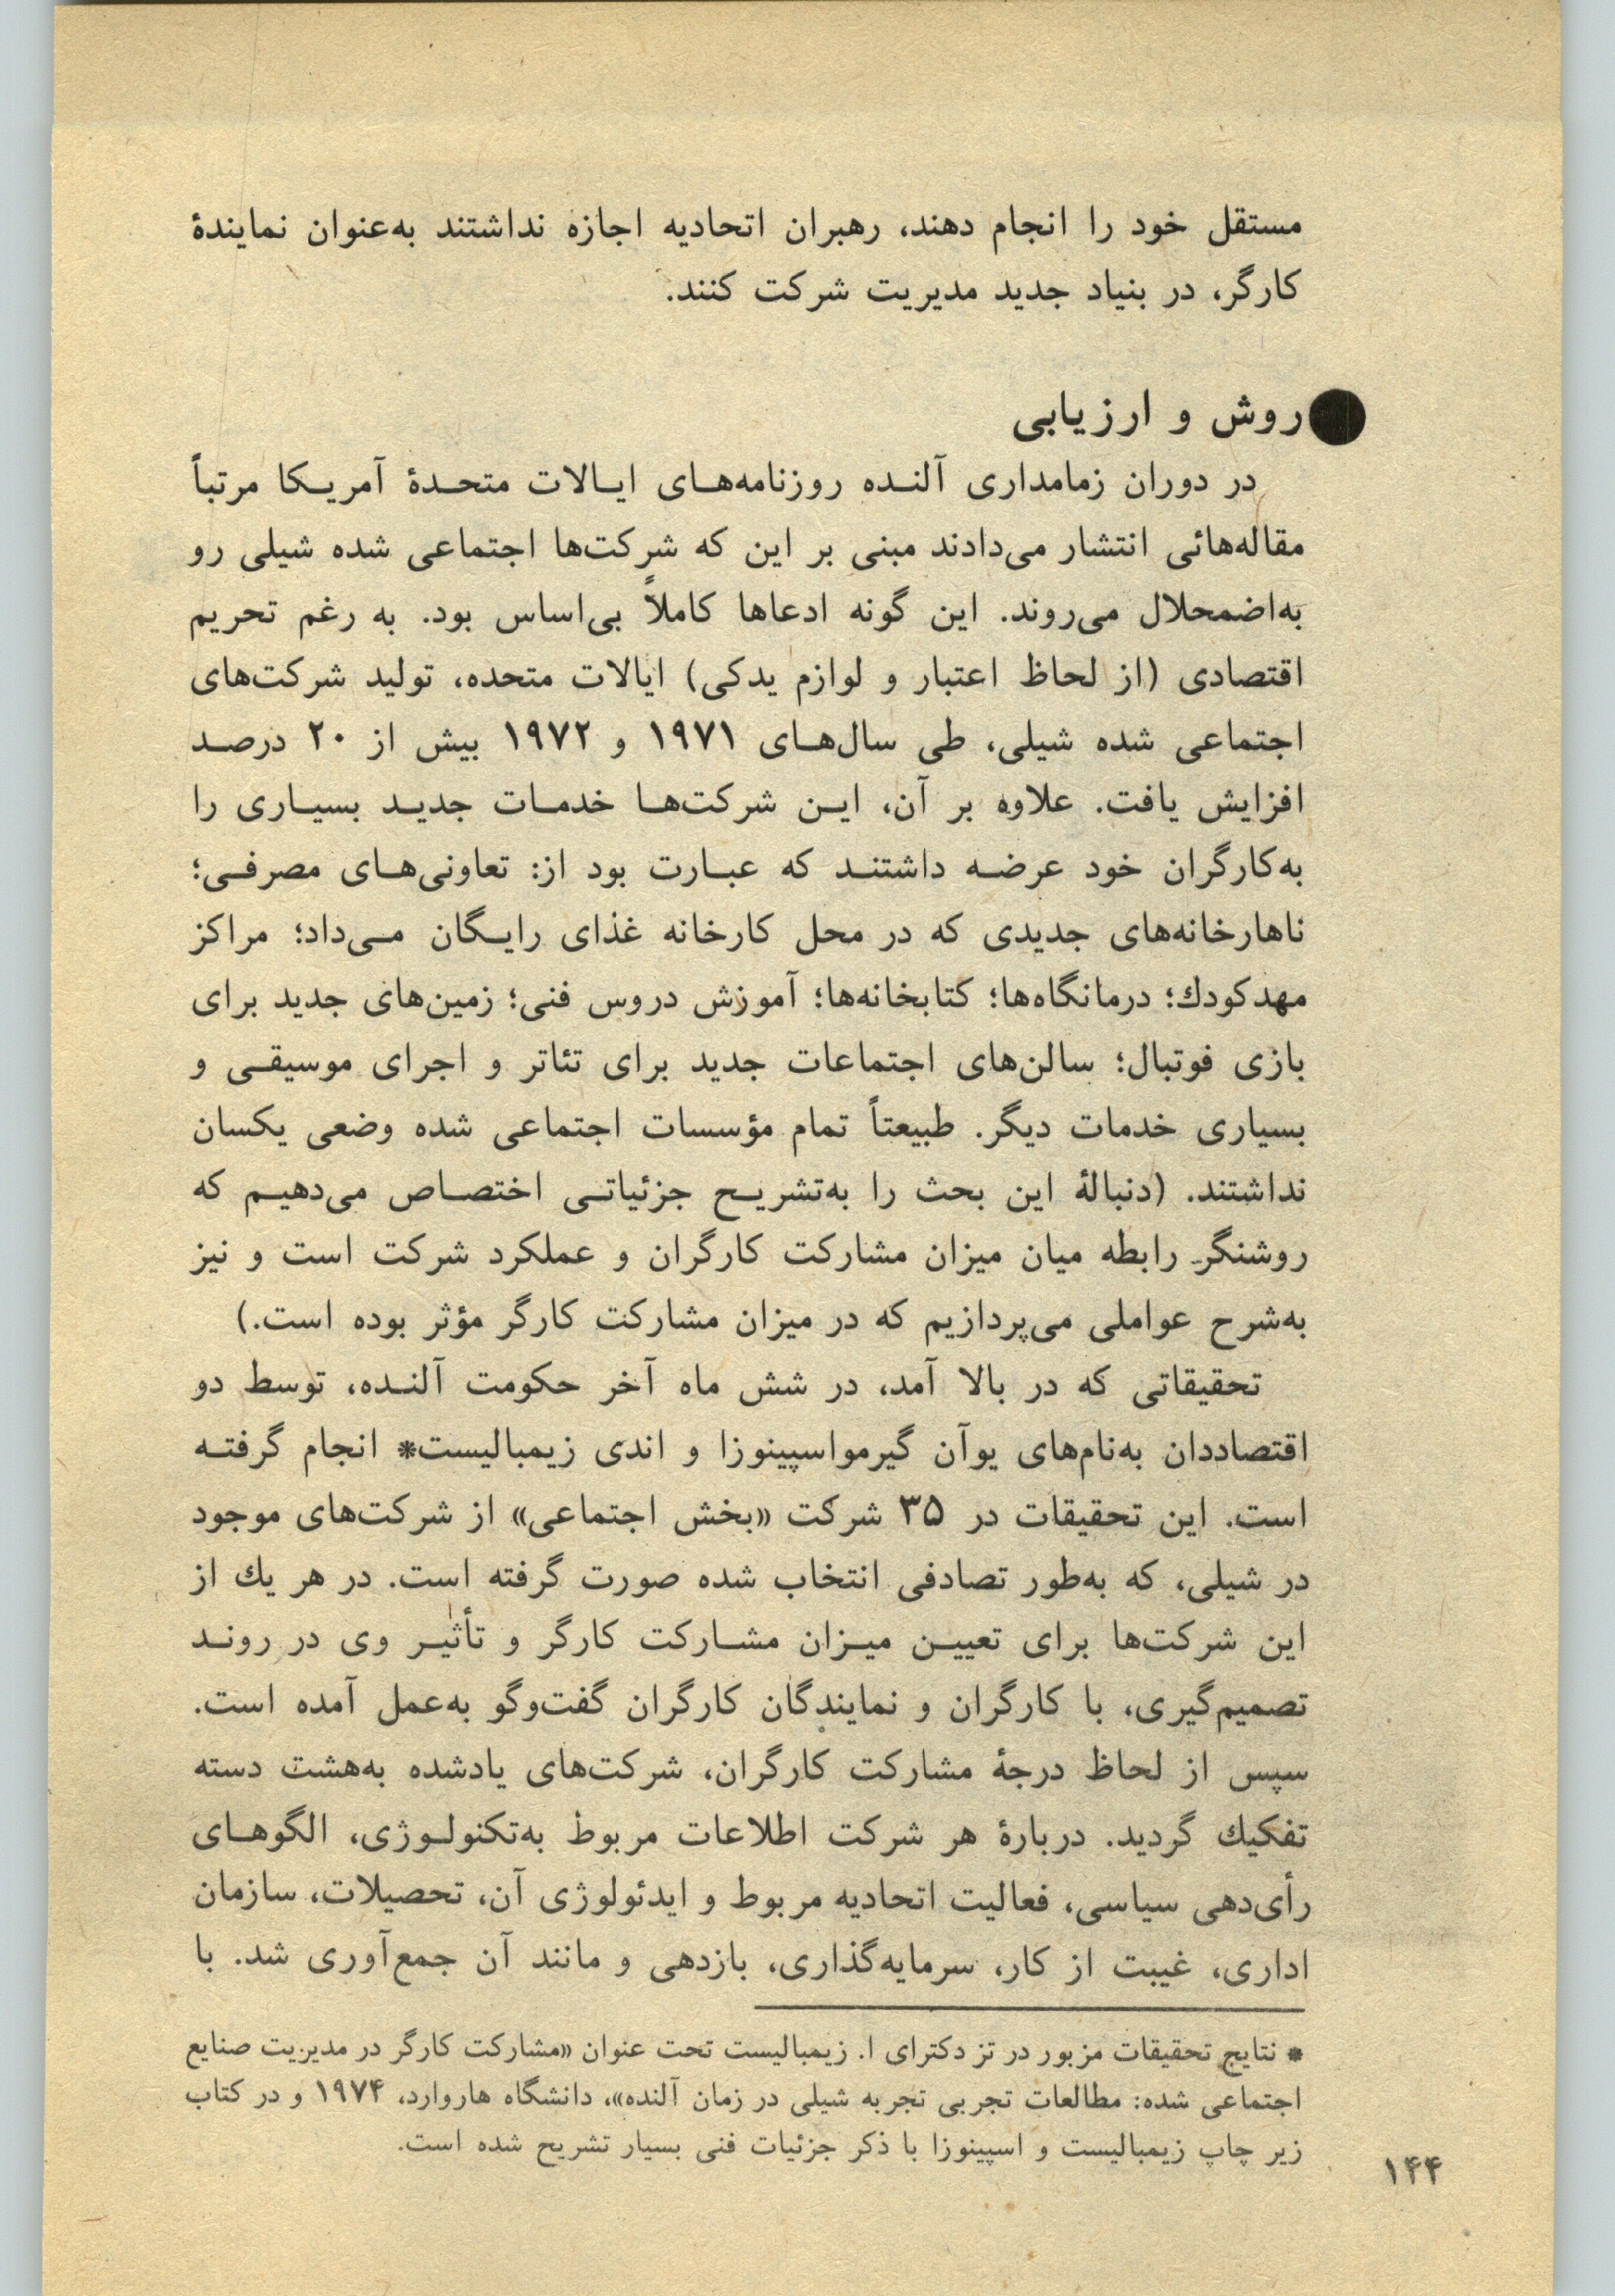 مستقل خود را انجام دهند، رهبران اتحادیه اجازه نداشتند به‌عنوان نمایندهٔ
کارگر، در بنیاد جدید مدیریت شرکت کنند.
●روش و ارزیابی
در دوران زمامداری آلنده روزنامه‌های ایالات متحدهٔ آمریکا مرتباً
مقاله‌هائی انتشار می‌دادند مبنی بر این که شرکت‌ها اجتماعی شده شیلی رو
به‌اضمحلال می‌روند. این گونه ادعاها کاملاً بی‌اساس بود. به رغم تحریم
اقتصادی (از لحاظ اعتبار و لوازم یدکی) ایالات متحده، تولید شرکت‌های
اجتماعی شده شیلی، طی سال‌های ۱۹۷۱ و ۱۹۷۲ بیش از ۲۰ درصد
افزایش یافت. علاوه بر آن، این شرکت‌ها خدمات جدید بسیاری را
به‌کارگران خود عرضه داشتند که عبارت بود از: تعاونی‌های مصرفی؛
ناهارخانه‌های جدیدی که در محل کارخانه غذای رایگان می‌داد؛ مراکز
مهدکودك؛ درمانگاه‌ها؛ کتابخانه‌ها؛ آموزش دروس فنی؛ زمین‌های جدید برای
بازی فوتبال؛ سالن‌های اجتماعات جدید برای تئاتر و اجرای موسیقی و
بسیاری خدمات دیگر. طبیعتاً تمام مؤسسات اجتماعی شده وضعی یکسان
نداشتند. (دنبالهٔ این بحث را به‌تشریح جزئیاتی اختصاص می‌دهیم که
روشنگرِ رابطه میان میزان مشارکت کارگران و عملکرد شرکت است و نیز
به‌شرح عواملی می‌پردازیم که در میزان مشارکت کارگر مؤثر بوده است.)
تحقیقاتی که در بالا آمد، در شش ماه آخر حکومت آلنده، توسط دو
اقتصاددان به‌نام‌های یوآن گیرمواسپینوزا و اندی زیمبالیست* انجام گرفته
است. این تحقیقات در ۳۵ شرکت «بخش اجتماعی» از شرکت‌های موجود
در شیلی، که به‌طور تصادفی انتخاب شده صورت گرفته است. در هر یك از
این شرکت‌ها برای تعیین میزان مشارکت کارگر و تأثیر وی در روند
تصمیم‌گیری، با کارگران و نمایندگان کارگران گفت‌وگو به‌عمل آمده است.
سپس از لحاظ درجهٔ مشارکت کارگران، شرکت‌های یادشده به‌هشت دسته
تفکیك گردید. دربارهٔ هر شرکت اطلاعات مربوط به‌تکنولوژی، الگوهای
رأی‌دهی سیاسی، فعالیت اتحادیه مربوط و ایدئولوژی آن، تحصیلات، سازمان
اداری، غیبت از کار، سرمایه‌گذاری، بازدهی و مانند آن جمع‌آوری شد. با
* نتایج تحقیقات مزبور در تز دکترای ا. زیمبالیست تحت عنوان «مشارکت کارگر در مدیریت صنایع
اجتماعی شده: مطالعات تجربی تجربه شیلی در زمان آلنده»، دانشگاه هاروارد، ۱۹۷۴ و در کتاب
زیر چاپ زیمبالیست و اسپینوزا با ذکر جزئیات فنی بسیار تشریح شده است.
۱۴۴